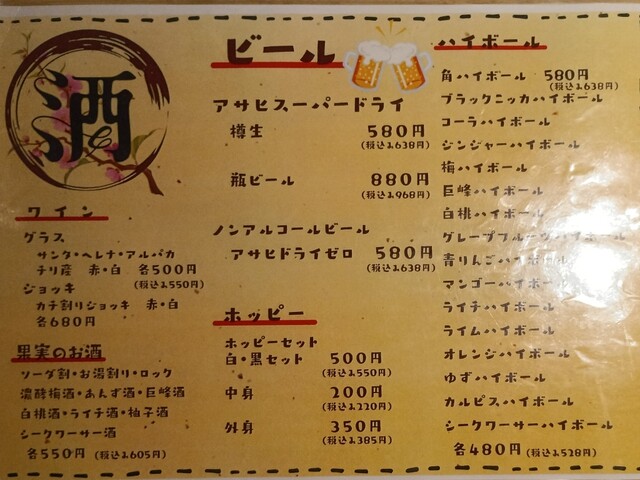 酒
ワイン
グラス
サンタ・ヘレナ・アルパカ
チリ産 赤・白 各500円
(税込み550円)
ジョッキ
カチ割りジョッキ 赤・白
各680円
果実のお酒
ソーダ割・お湯割り・ロック
濃醇梅酒・あんず酒・巨峰酒
白桃酒・ライチ酒・柚子酒
シークワーサー酒
各550円 (税込み605円)
ビール
アサヒスーパードライ
樽生 580円
(税込み638円)
瓶ビール 880円
(税込み968円)
ノンアルコールビール
アサヒドライゼロ 580円
(税込み638円)
ホッピー
ホッピーセット
白・黒セット 500円
(税込み550円)
中身 200円
(税込み220円)
外身 350円
(税込み385円)
ハイボール
角ハイボール 580円
(税込み638円)
ブラックニッカハイボール
コーラハイボール
ジンジャーハイボール
梅ハイボール
巨峰ハイボール
白桃ハイボール
グレープフルーツハイボール
青りんごハイボール
マンゴーハイボール
ライチハイボール
ライムハイボール
オレンジハイボール
ゆずハイボール
カルピスハイボール
シークワーサーハイボール
各480円 (税込み528円)